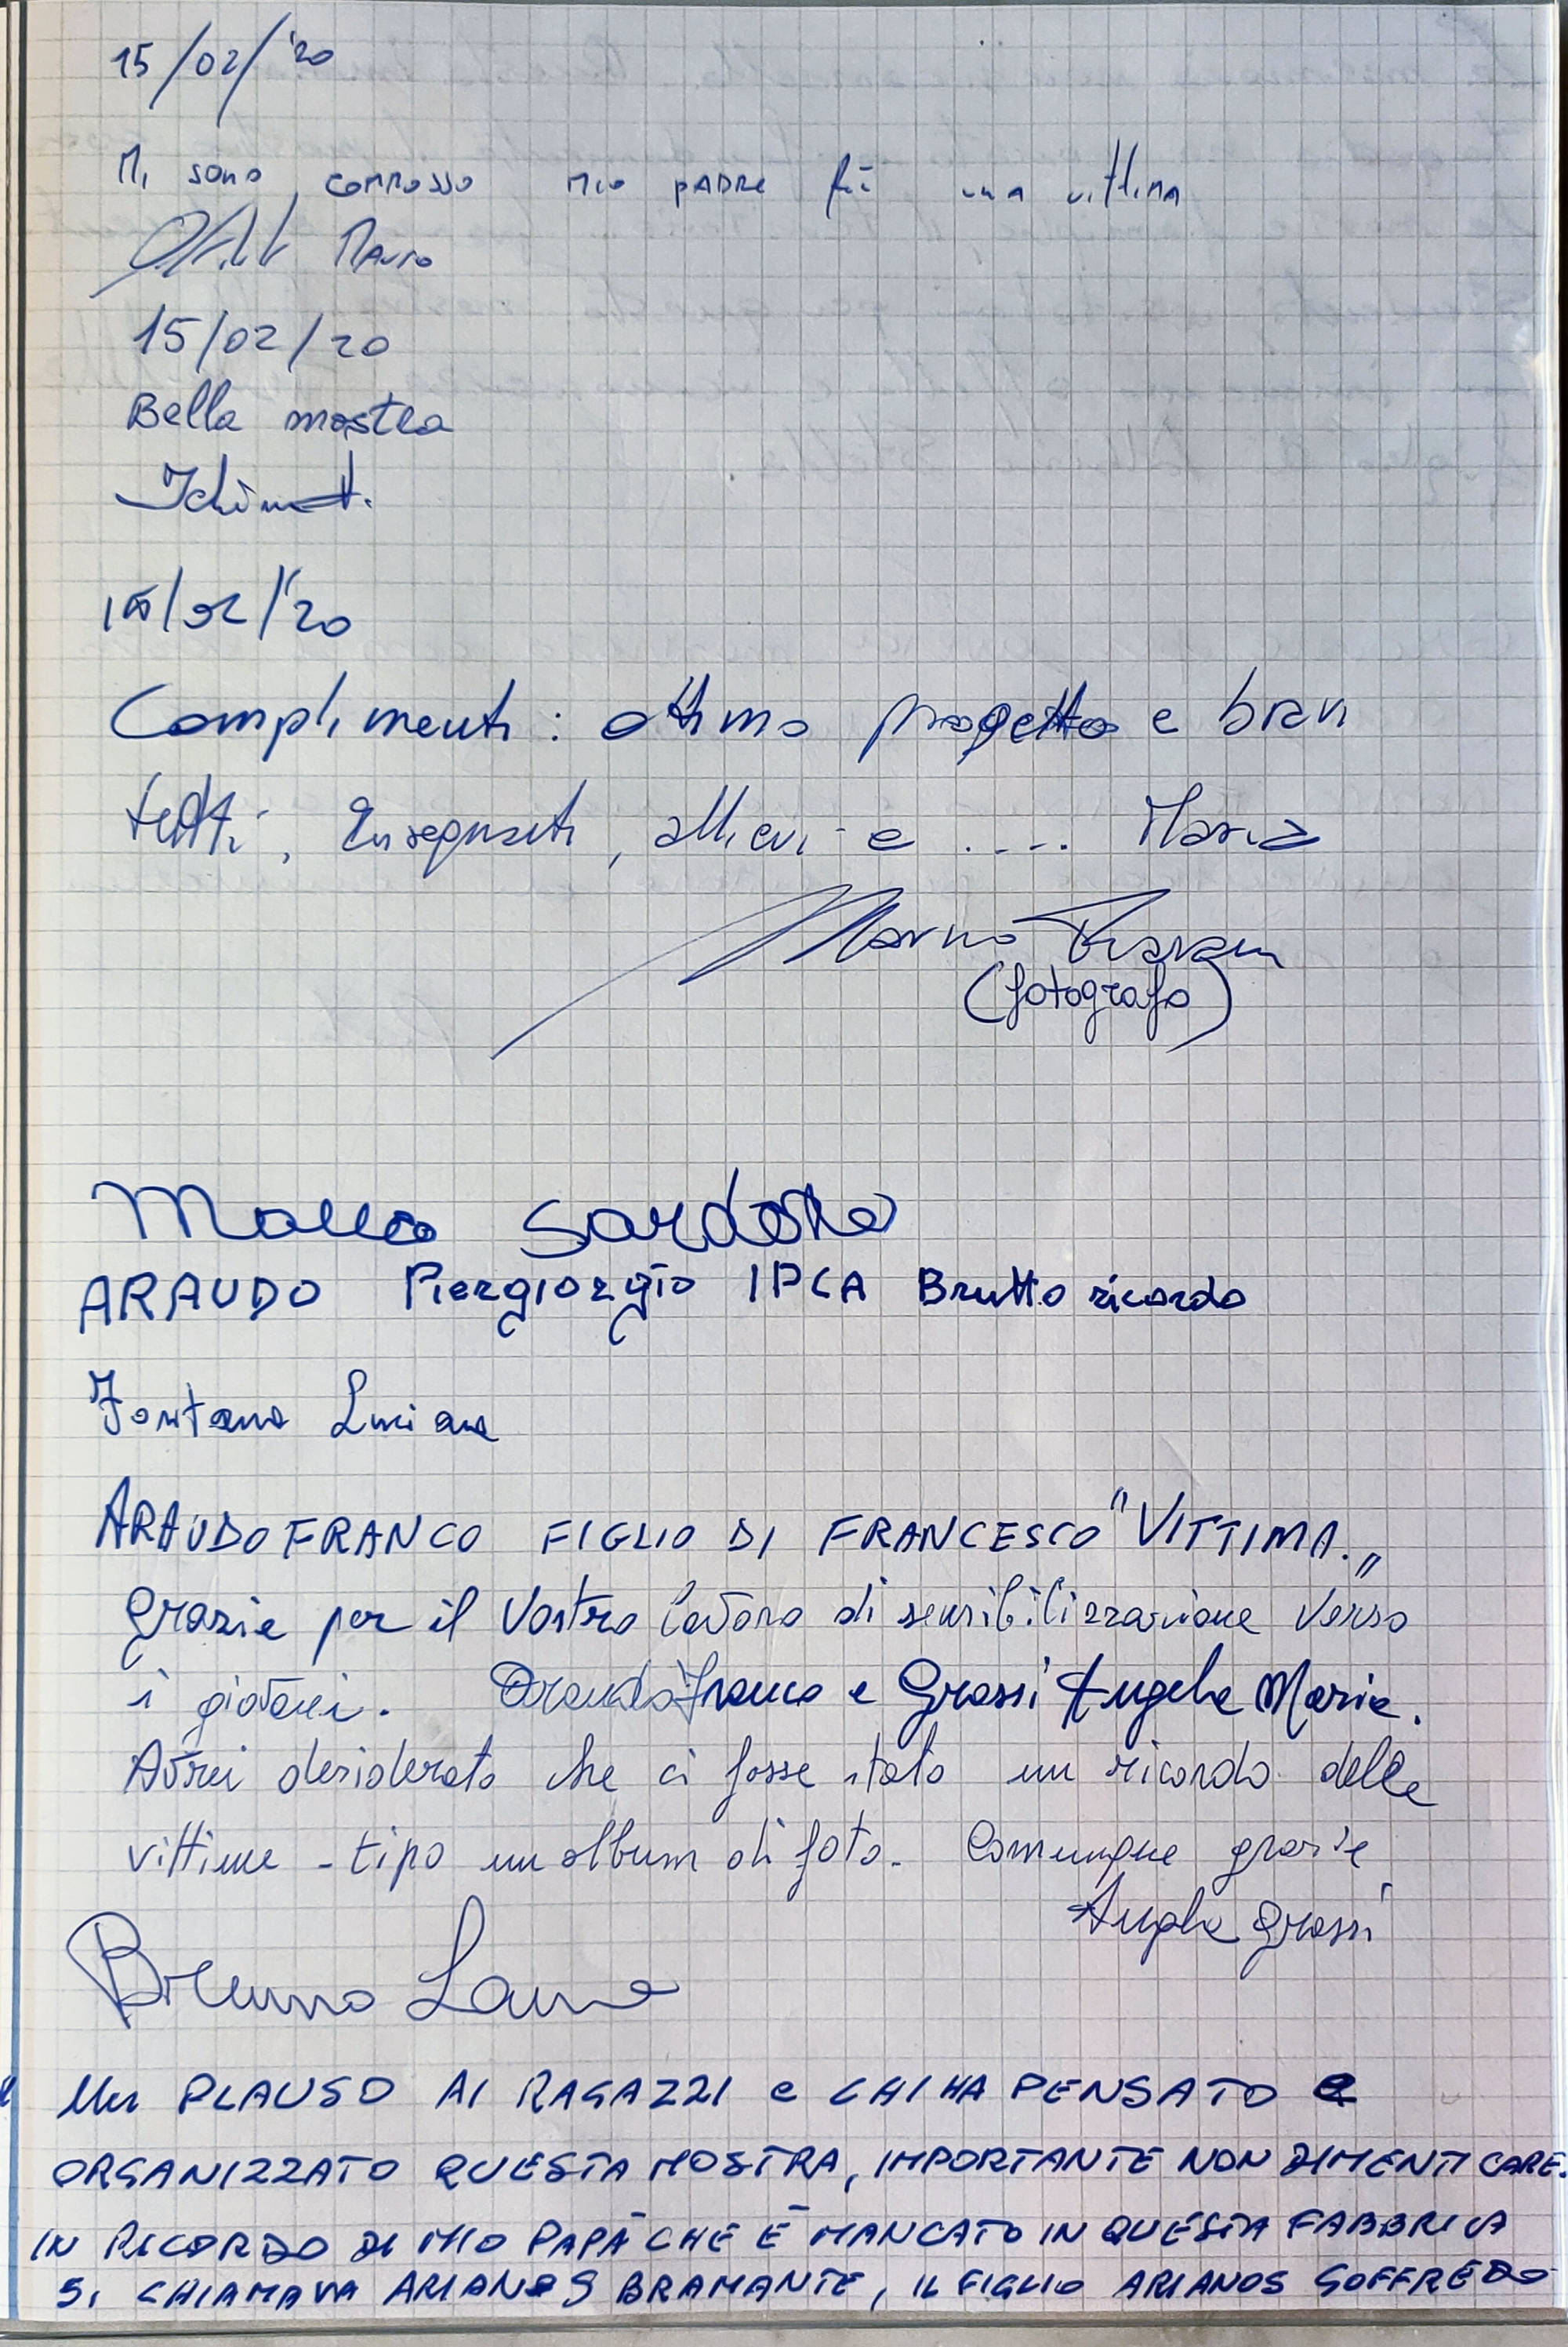 15/02/'20
Mi sono commosso mio padre fù una vittima
Mauro
15/02/20
Bella mostra
15/02/'20
Complimenti: ottimo progetto e bravi
tutti, Insegnanti, allievi e .... Maria
Marino
(fotografo)
Marco
ARAUDO Piergiorgio IPCA Brutto ricordo
Fontana Luciana
ARAUDO FRANCO FIGLIO DI FRANCESCO "VITTIMA."
Grazie per il Vostro lavoro di sensibilizzazione verso
i giovani. Araudo Franco e Grassi Angela Maria.
Avrei desiderato che ci fosse stato un ricordo delle
vittime - tipo un album di foto. Comunque grazie
Angela Grassi
Bruno
Un PLAUSO AI RAGAZZI e CHI HA PENSATO e
ORGANIZZATO QUESTA MOSTRA, IMPORTANTE NON DIMENTICARE.
IN RICORDO DI MIO PAPÀ CHE È MANCATO IN QUESTA FABBRICA
SI CHIAMAVA ARIANOS BRAMANTE, IL FIGLIO ARIANOS GOFFREDO